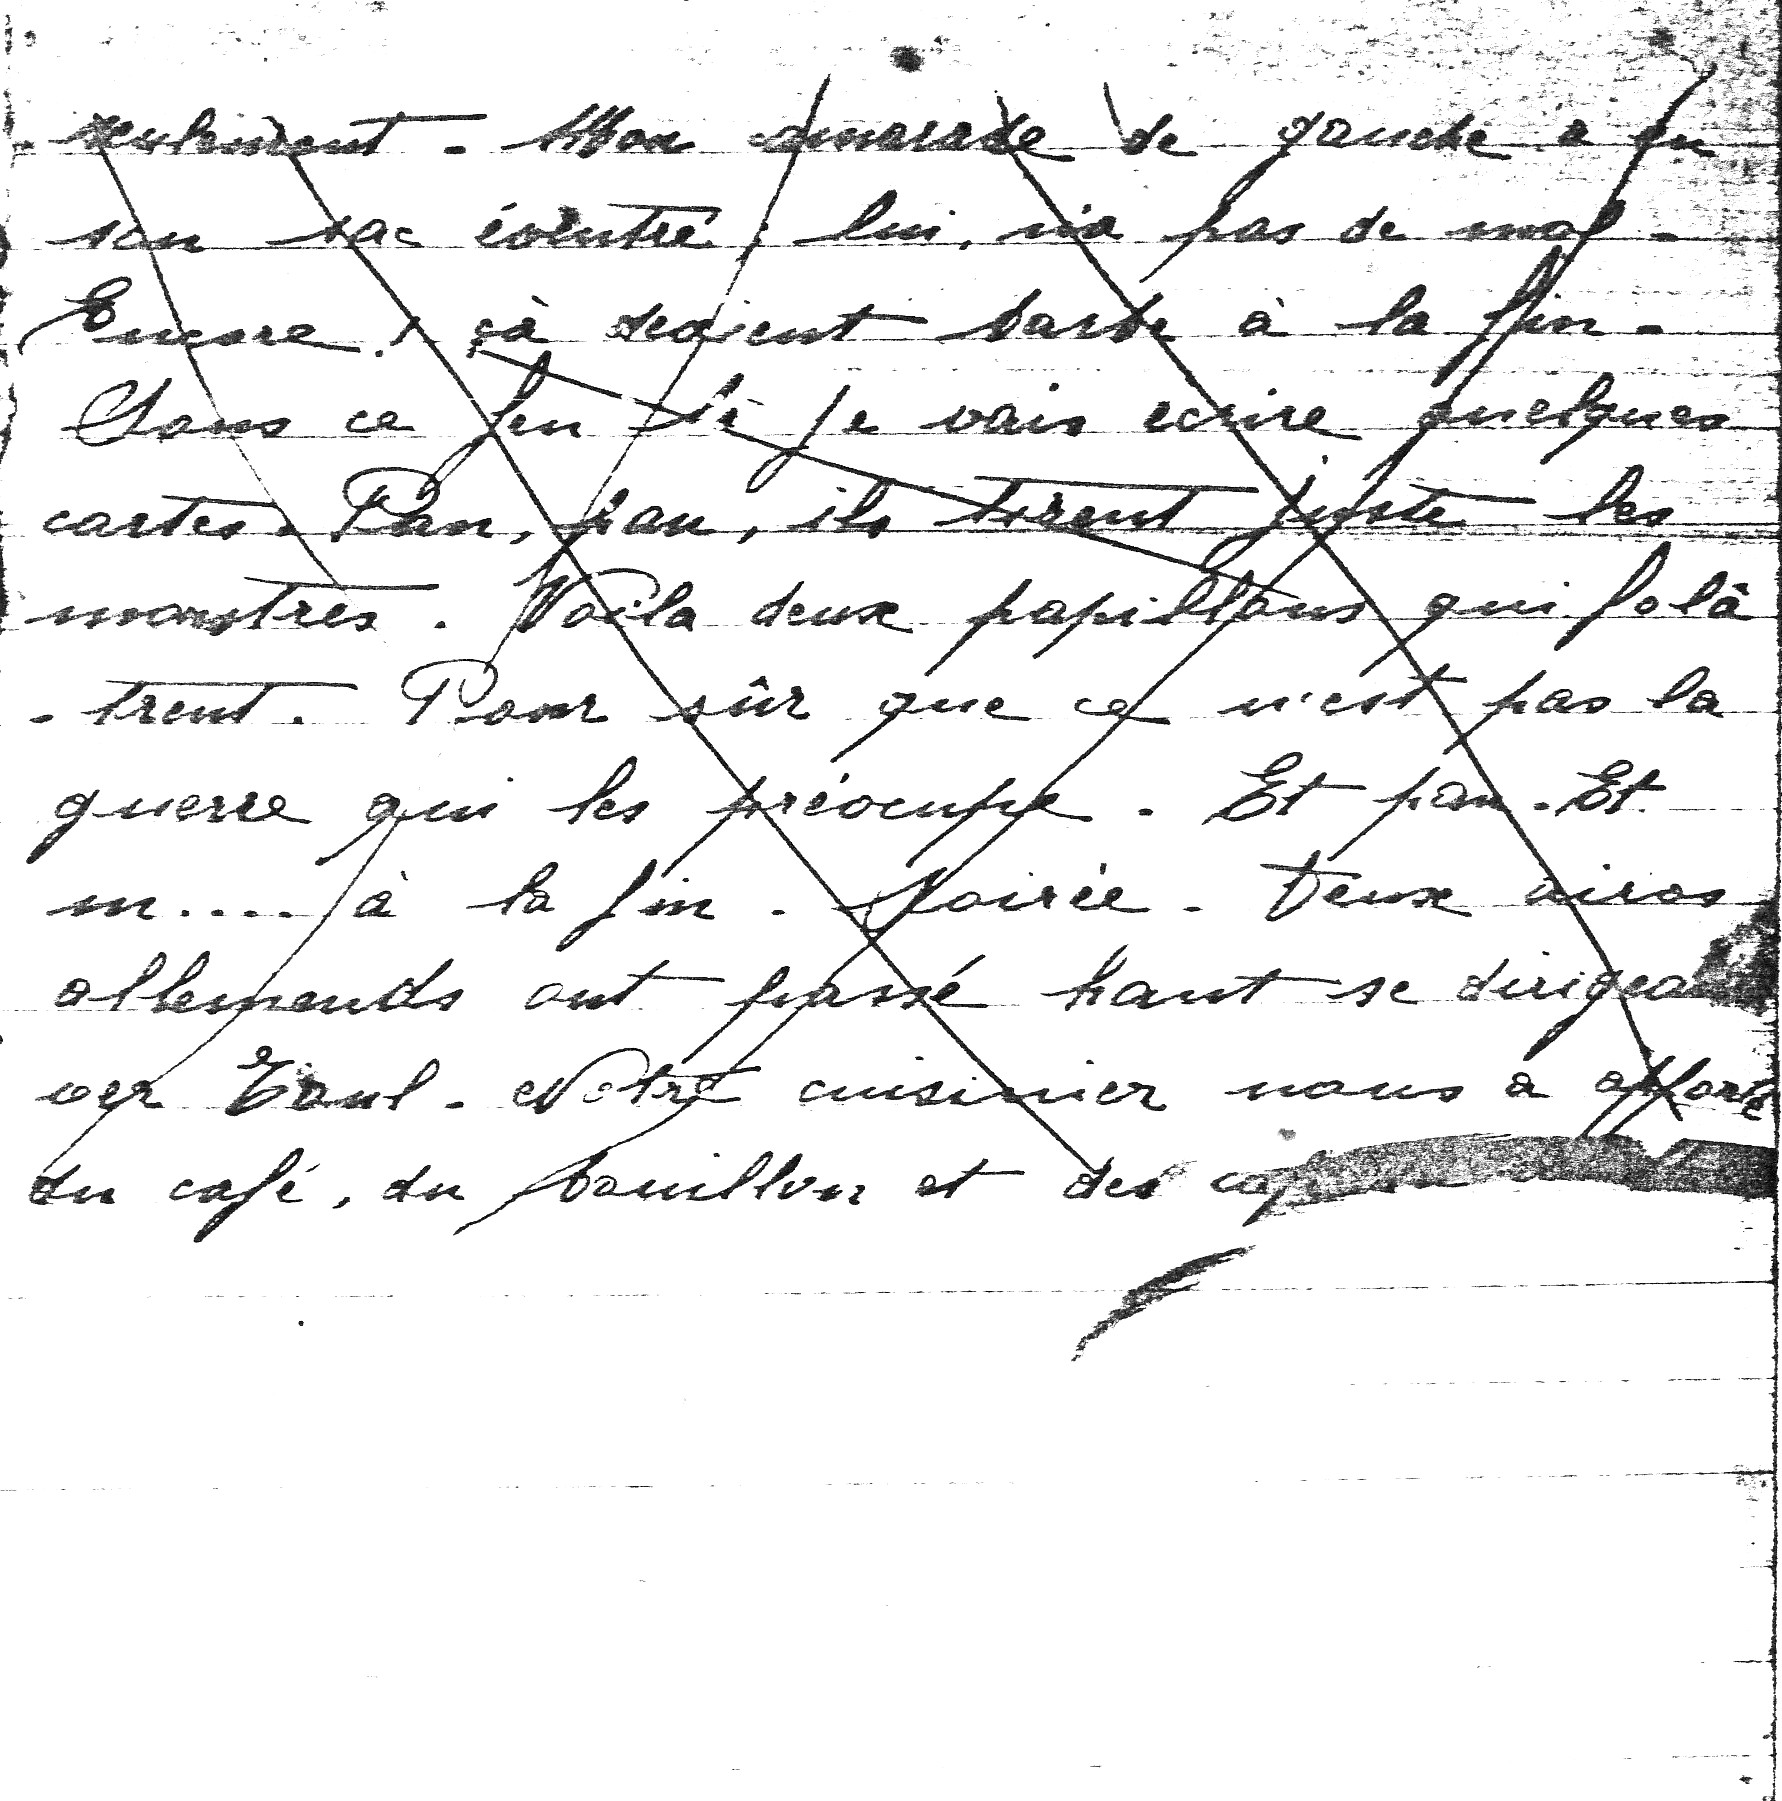 seulement. Mon camarade de gauche a eu
son sac éventré; lui, n'a pas de mal.
Encore! çà devient barbe à la fin.
Sous ce feu là je vais ecrire quelques
cartes. Pan, pan, ils tirent juste les
monstres. Voila deux papillons qui folâ
-trent. Pour sûr que ce n'est pas la
guerre qui les préocupe. Et pan. Et
m.... à la fin. Soirée. Deux aviros
allemends ont passé haut se dirigea
ver Toul. Notre cuisinier nous a apporté
du café, du bouillon et des